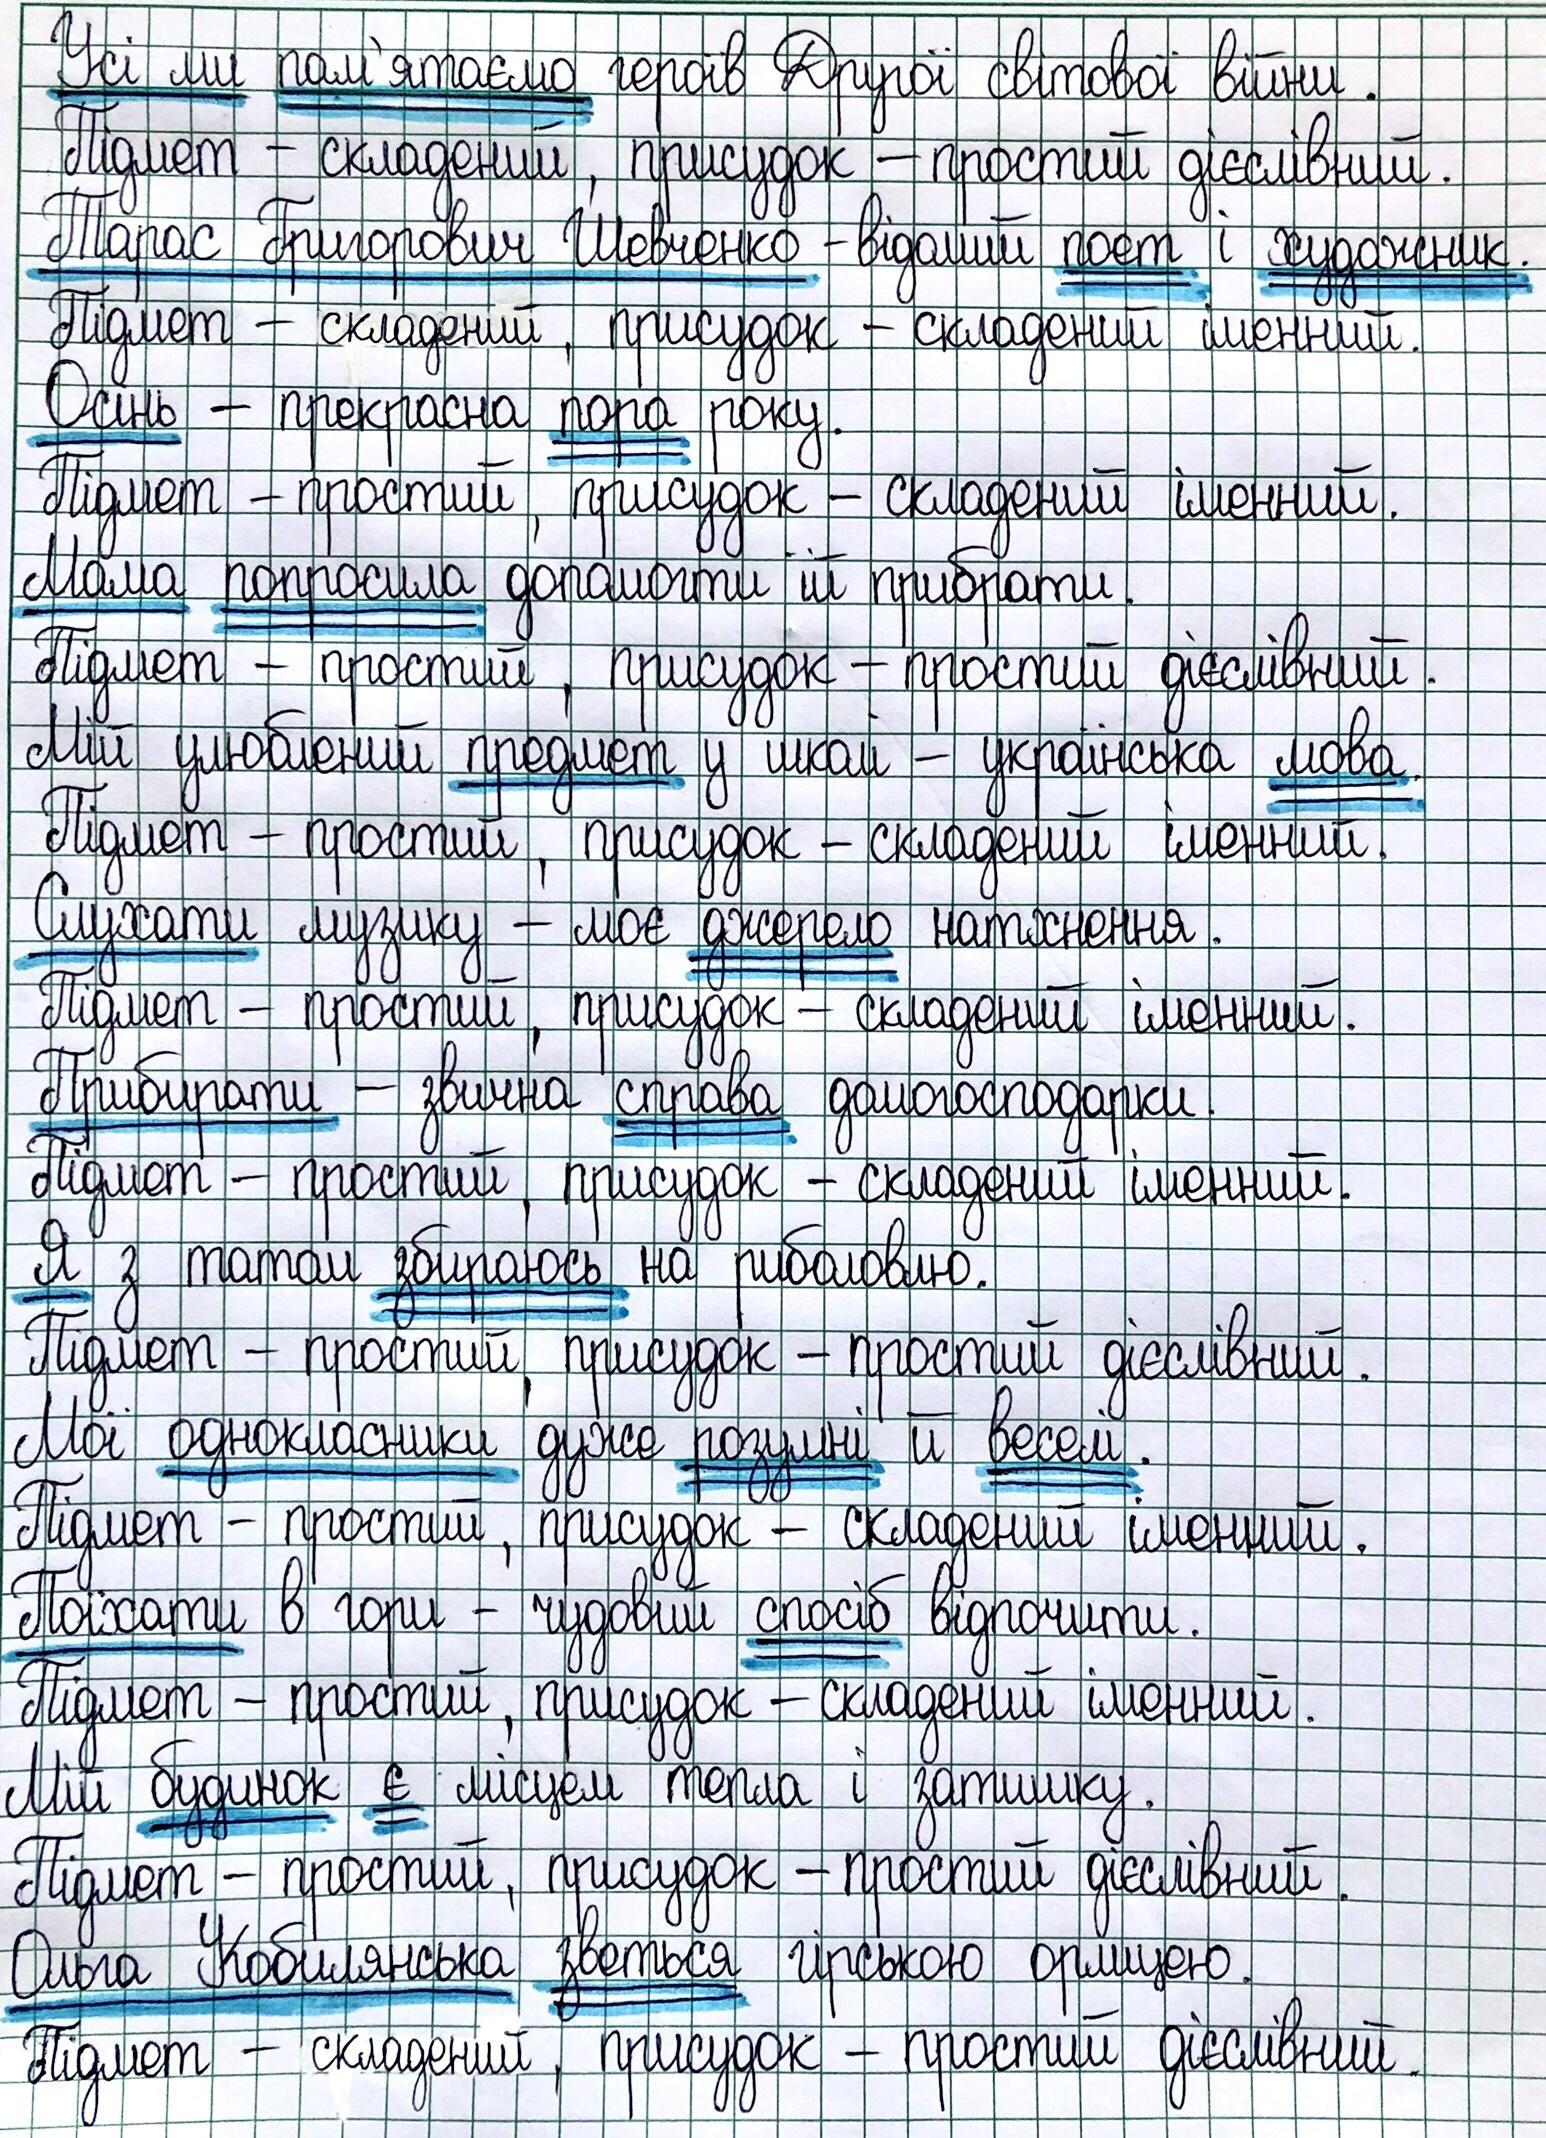 Усі ми пам'ятаємо героїв Другої світової війни.
Підмет – складений, присудок – простий дієслівний.
Тарас Григорович Шевченко – відомий поет і художник.
Підмет – складений, присудок – складений іменний.
Осінь – прекрасна пора року.
Підмет – простий, присудок – складений іменний.
Мама попросила допомогти їй прибрати.
Підмет – простий, присудок – простий дієслівний.
Мій улюблений предмет у школі – українська мова.
Підмет – простий, присудок – складений іменний.
Слухати музику – моє джерело натхнення.
Підмет – простий, присудок – складений іменний.
Прибирати – звична справа домогосподарки.
Підмет – простий, присудок – складений іменний.
Я з татом збираюсь на риболовлю.
Підмет – простий, присудок – простий дієслівний.
Мої однокласники дуже розумні й веселі.
Підмет – простий, присудок – складений іменний.
Поїхати в гори – чудовий спосіб відпочити.
Підмет – простий, присудок – складений іменний.
Мій будинок є місцем тепла і затишку.
Підмет – простий, присудок – простий дієслівний.
Ольга Кобилянська зветься гірською орлицею.
Підмет – складений, присудок – простий дієслівний.